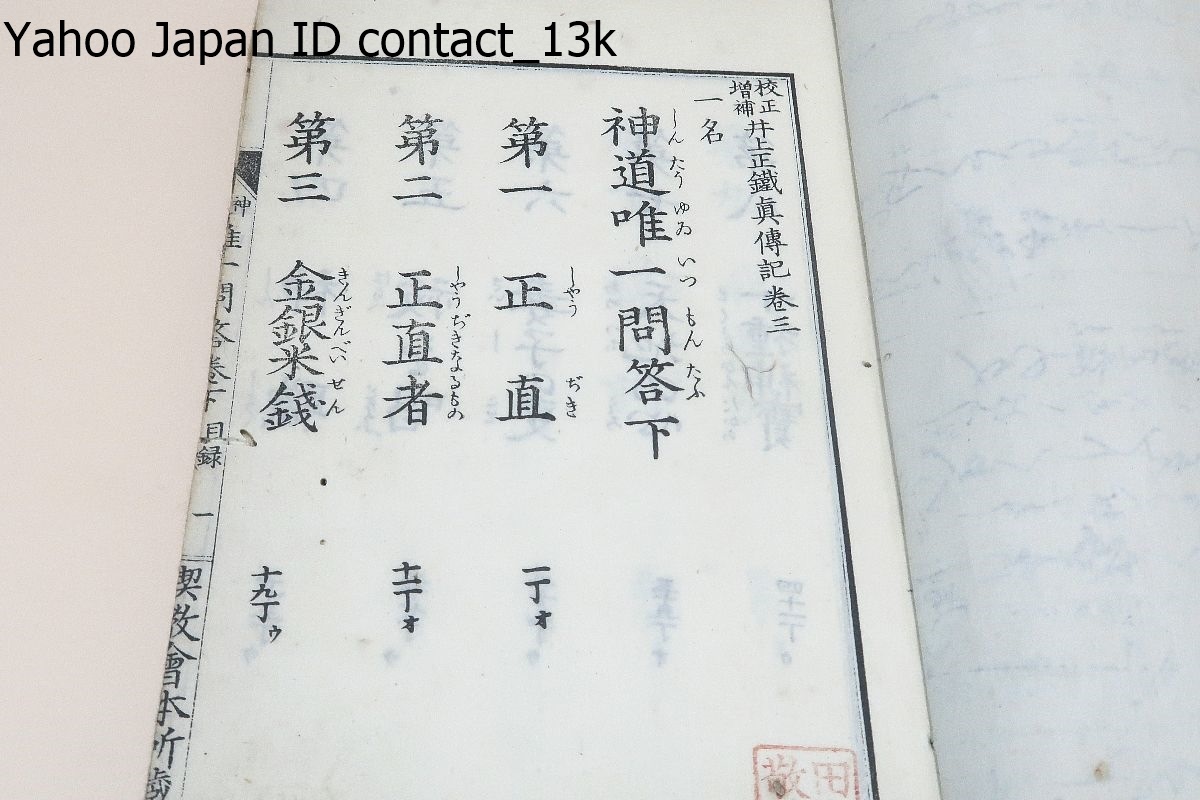 Yahoo Japan ID contact_13k
校正増補井上正鐵眞傳記卷三
一名
神道唯一問答下
しんたうゆゐいつもんたふ
第一 正直 一丁オ
しやうぢき
第二 正直者 十二丁オ
しやうぢきなるもの
第三 金銀米錢 十九丁ゥ
きんぎんべいせん
神唯一問答卷下 目録 一 禊教會本所藏
田
敬